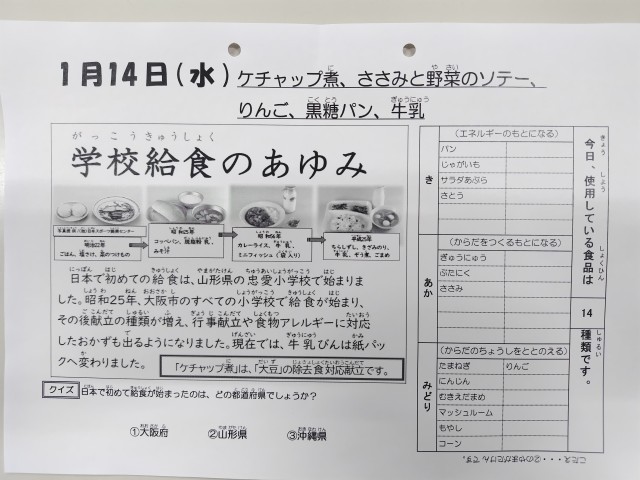 1月14日(水)ケチャップ煮、ささみと野菜のソテー、
りんご、黒糖パン、牛乳
がっこうきゅうしょく
学校給食のあゆみ
明治22年
ごはん、塩さけ、菜のつけもの
昭和25年
コッペパン、脱脂粉乳、
みそ汁
昭和56年
カレーライス、牛乳、
ミニフィッシュ(袋入り)
平成25年
ちらしずし、きざみのり、
牛乳、ぞう煮、ごまめ
日本で初めての給食は、山形県の忠愛小学校で始まりま
した。昭和25年、大阪市のすべての小学校で給食が始まり、
その後献立の種類が増え、行事献立や食物アレルギーに対応
したおかずも出るようになりました。現在では、牛乳びんは紙パッ
クへ変わりました。
「ケチャップ煮」は、「大豆」の除去食対応献立です。
クイズ 日本で初めて給食が始まったのは、どの都道府県でしょうか?
①大阪府 ②山形県 ③沖縄県
今日、使用している食品は
14
種類です。
き
(エネルギーのもとになる)
パン
じゃがいも
サラダあぶら
さとう
あか
(からだをつくるもとになる)
ぎゅうにゅう
ぶたにく
ささみ
みどり
(からだのちょうしをととのえる)
たまねぎ りんご
にんじん
むきえだまめ
マッシュルーム
もやし
コーン
こたえ・・・②のやまがたけんです。